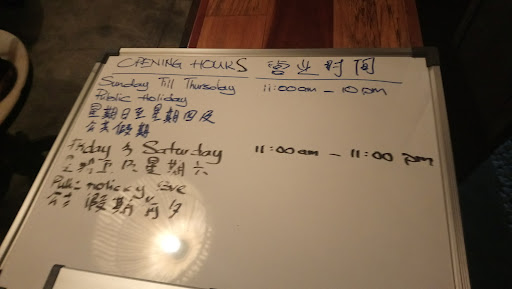 OPENING HOURS 营业时间
Sunday Till Thursday 11:00am - 10pm
Public Holiday
星期日至星期四及
公共假期
Friday & Saturday 11:00am - 11:00pm
星期五及星期六
Public holiday Eve
公共假期前夕